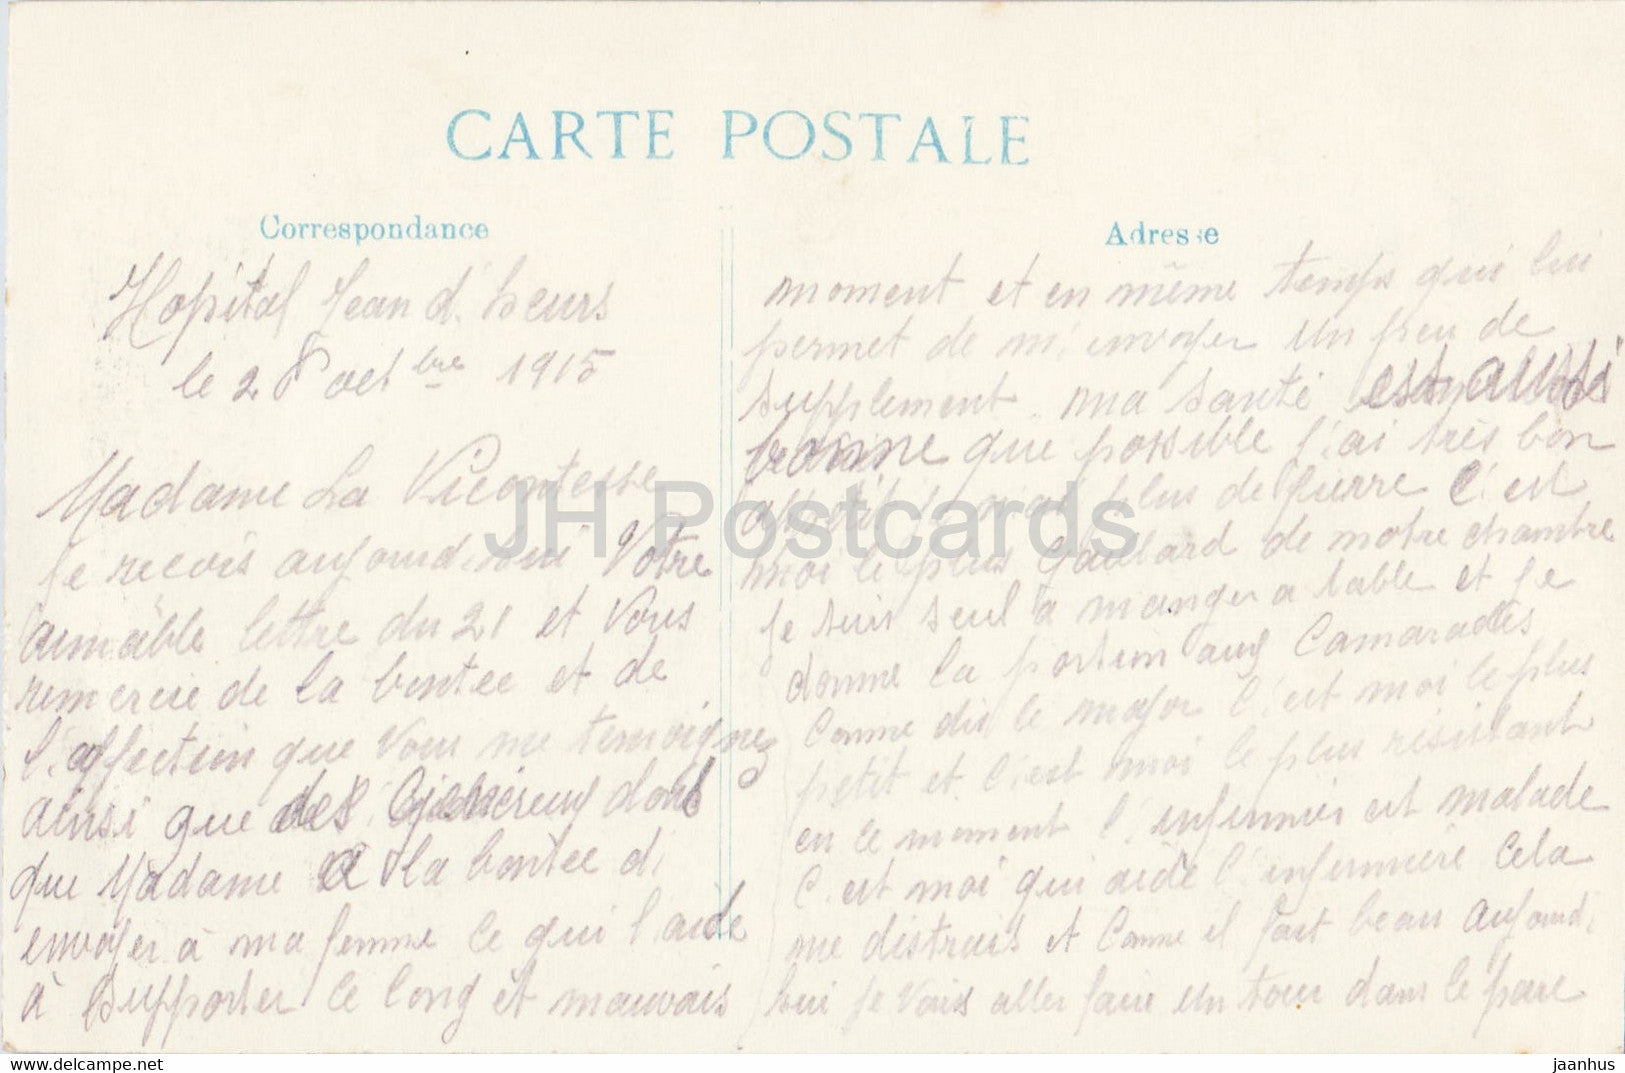 CARTE POSTALE
Correspondance
Hopital Jean d'heurs
le 28 octbre 1915
Madame La Vicontesse
Je recois aujourd,hui Votre
aimable lettre du 21 et Vous
remercie de la bontee et de
l'affection que Vous me temoignez
ainsi que des Genereux dont
que Madame a la bontee d,
envoyer à ma femme ce qui l'aide
à supporter le long et mauvais
Adresse
moment et en même temps qui lui
permet de m'envoyer un peu de
supplement. ma santé est aussi
bonne que possible j'ai très bon
appétit je n'ai plus de fievre c'est
moi le plus gaillard de notre chambre
je suis seul a manger a table et je
donne la portion aux Camarades
Comme dis le major c'est moi le plus
petit et c'est moi le plus résistant
en ce moment l'infirmier est malade
C'est moi qui aide l'infirmière Cela
me distrais et Comme il fait beau aujourd,
hui je Vais aller faire un tour dans le parc
JH Postcards
HipPostcard.com
jaanhus